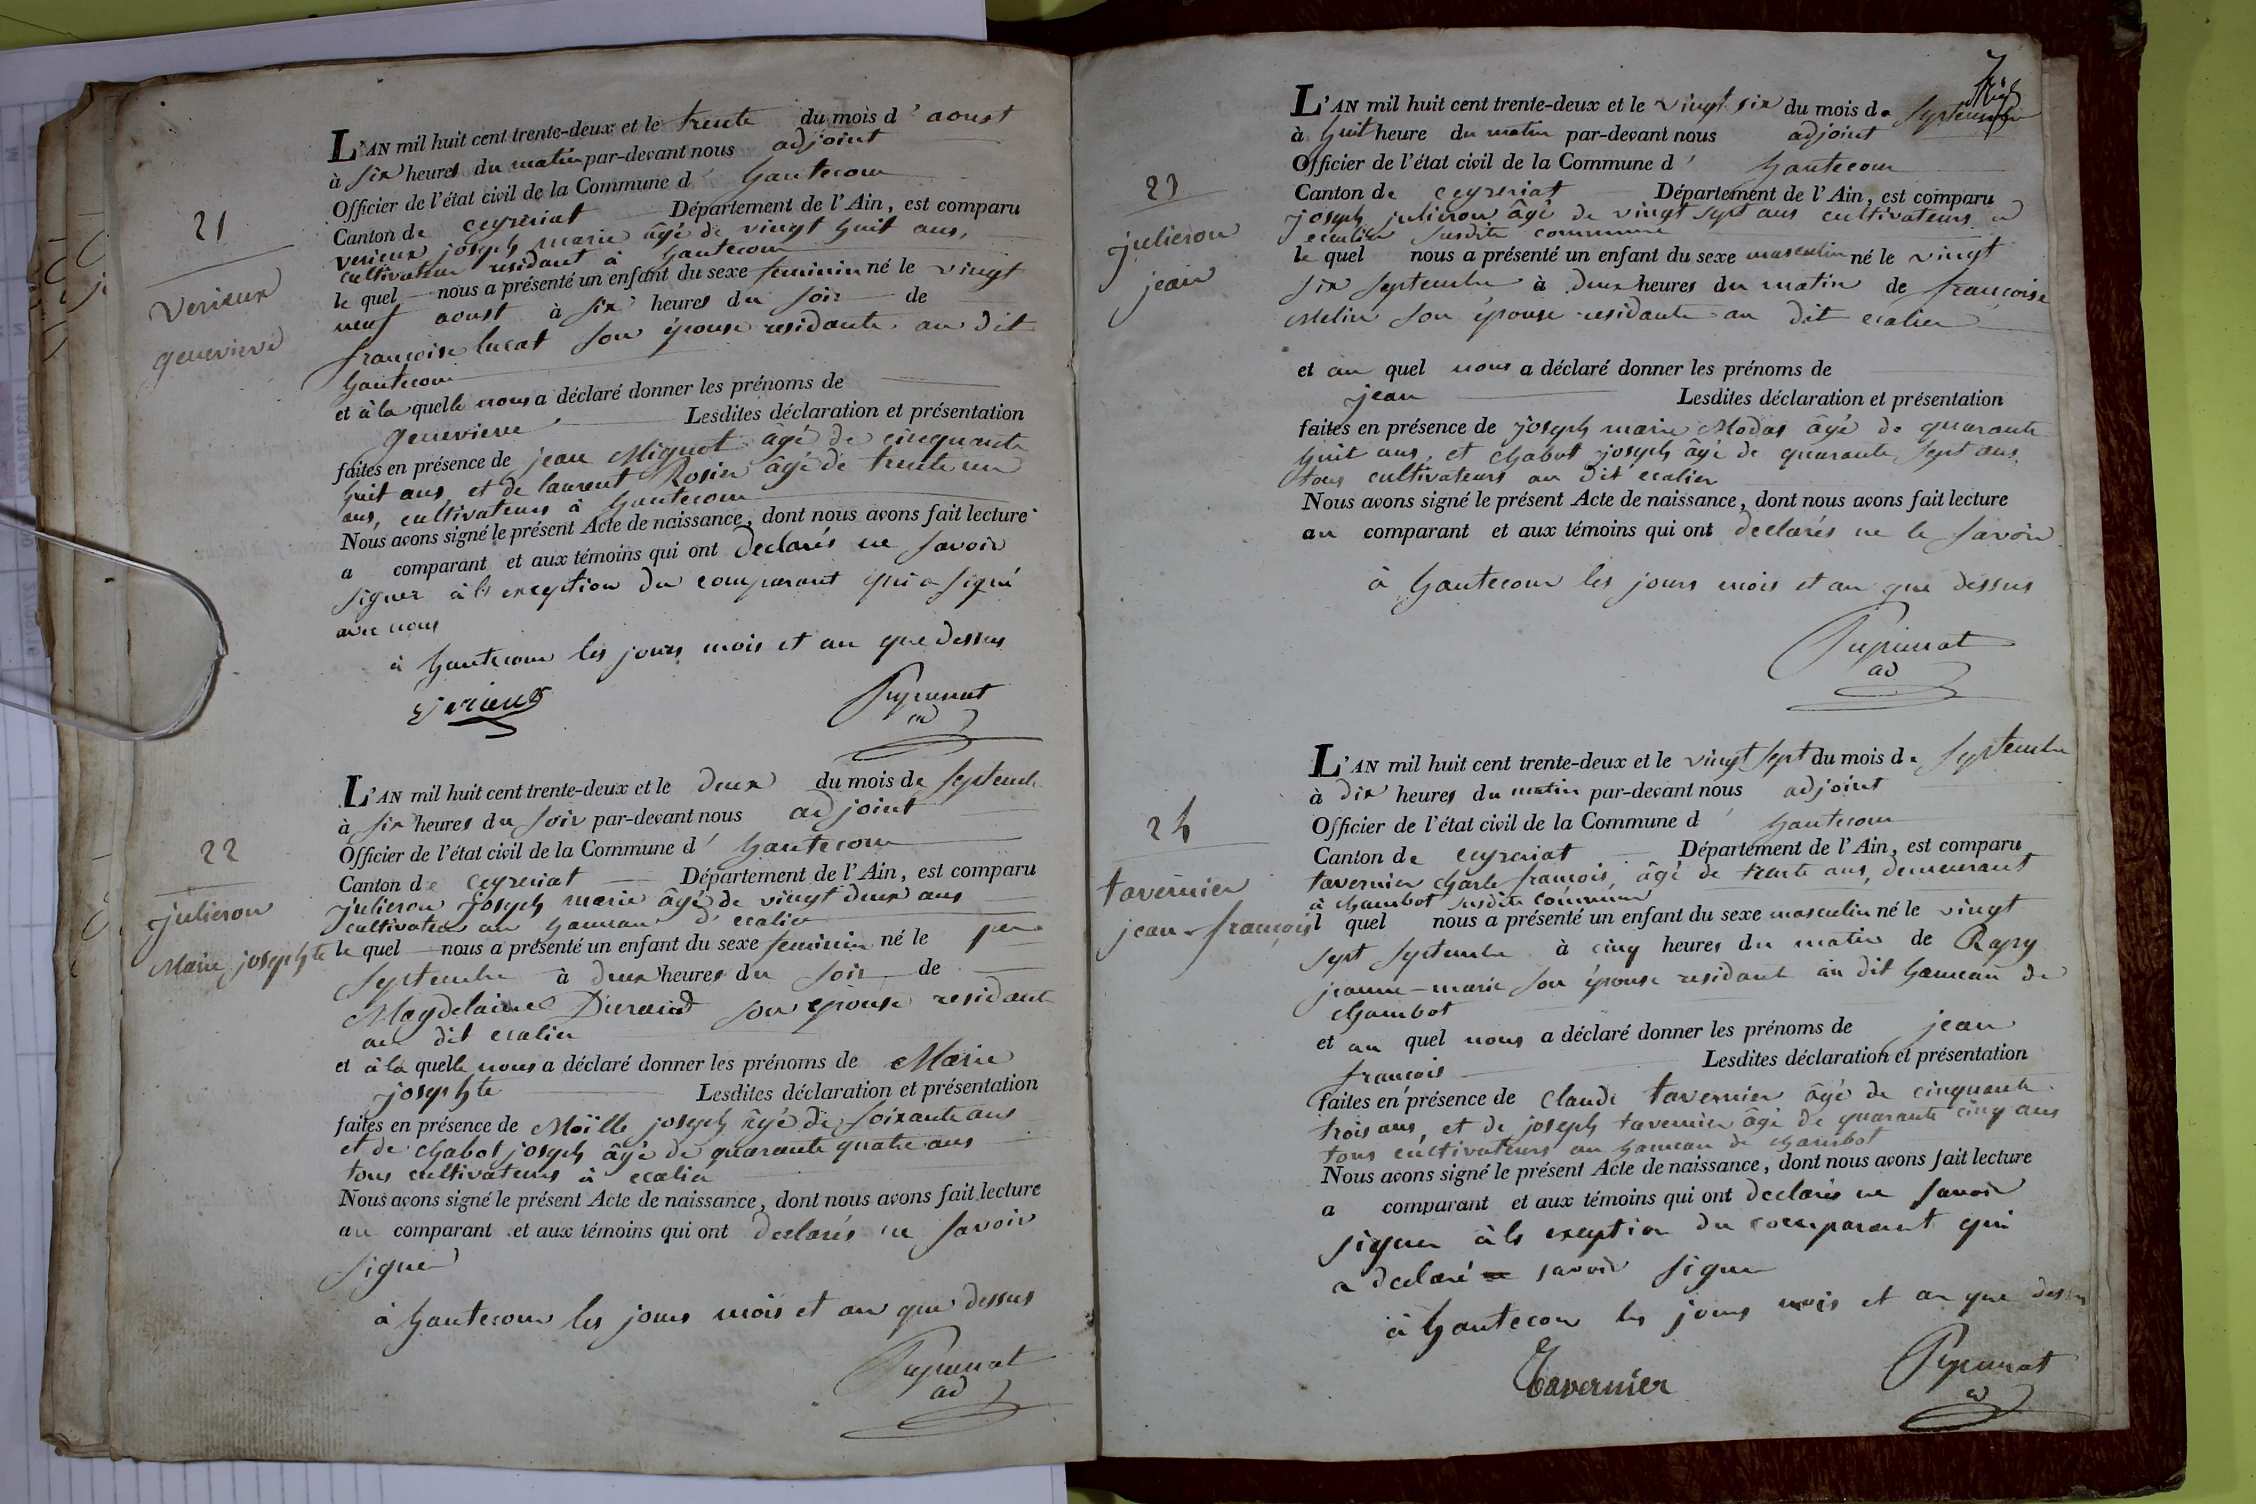 21
verieux
genevieve
L'AN mil huit cent trente-deux et le trente du mois d'aoust
à six heures du matin par-devant nous adjoint
Officier de l'état civil de la Commune d' hautecour
Canton de ceyzeriat Département de l'Ain, est comparu
verieux joseph marie âgé de vingt huit ans,
cultivateur residant à hautecour
le quel nous a présenté un enfant du sexe feminin né le vingt
neuf aoust à six heures du soir de
françoise lucat son épouse residante au dit
hautecour
et à la quelle nous a déclaré donner les prénoms de
genevieve Lesdites déclaration et présentation
faites en présence de jean Mignot âgé de cinquante
huit ans, et de laurent Rosier âgé de trente un
ans, cultivateurs à hautecour
Nous avons signé le présent Acte de naissance, dont nous avons fait lecture
a comparant et aux témoins qui ont declarés ne savoir
signer à l'exception du comparant qui a signé
avec nous
à hautecour les jours mois et an que dessus
verieux
ad
22
julieron
Marie josephte
L'AN mil huit cent trente-deux et le deux du mois de septemb
à six heures du soir par-devant nous adjoint
Officier de l'état civil de la Commune d' hautecour
Canton de ceyzeriat Département de l'Ain, est comparu
julieron joseph marie âgé de vingt deux ans
cultivateur au hameau d' ecalier
le quel nous a présenté un enfant du sexe feminin né le
septembre à deux heures du soir de
Magdelaine Durand son epouse residant
au dit ecalier
et à la quelle nous a déclaré donner les prénoms de Marie
josephte Lesdites déclaration et présentation
faites en présence de Moïlle joseph âgé de soixante ans
et de chabot joseph âgé de quarante quatre ans
tous cultivateurs à ecalier
Nous avons signé le présent Acte de naissance, dont nous avons fait lecture
au comparant et aux témoins qui ont declarés ne savoir
signer
à hautecour les jours mois et an que dessus
ad
23
julieron
jean
L'AN mil huit cent trente-deux et le vingt six du mois de septembre
à huit heure du matin par-devant nous adjoint
Officier de l'état civil de la Commune d' hautecour
Canton de ceyzeriat Département de l'Ain, est comparu
joseph julieron âgé de vingt sept ans cultivateurs a
ecalier susdite commune
le quel nous a présenté un enfant du sexe masculin né le vingt
six septembre à deux heures du matin de françoise
Melin son épouse residante au dit ecalier
et au quel nous a déclaré donner les prénoms de
jean Lesdites déclaration et présentation
faites en présence de joseph marie Modas âgé de quarante
huit ans, et chabot joseph âgé de quarante sept ans
tous cultivateurs au dit ecalier
Nous avons signé le présent Acte de naissance, dont nous avons fait lecture
au comparant et aux témoins qui ont declarés ne le savoir
à hautecour les jours mois et an que dessus
ad
24
tavernier
jean-françois
L'AN mil huit cent trente-deux et le vingt sept du mois de septembre
à dix heures du matin par-devant nous adjoint
Officier de l'état civil de la Commune d' hautecour
Canton de ceyzeriat Département de l'Ain, est comparu
tavernier charle françois, âgé de trente ans, demeurant
à chambot susdite commune
l quel nous a présenté un enfant du sexe masculin né le vingt
sept septembre à cinq heures du matin de Rapy
jeanne-marie son épouse residant au dit hameau de
chambot
et au quel nous a déclaré donner les prénoms de jean
françois Lesdites déclaration et présentation
faites en présence de claude tavernier âgé de cinquante
trois ans, et de joseph tavernier âgé de quarante cinq ans
tous cultivateurs au hameau de chambot
Nous avons signé le présent Acte de naissance, dont nous avons fait lecture
a comparant et aux témoins qui ont declarés ne savoir
signer à l'exeption du comparant qui
a declaré savoir signer
à hautecour les jours mois et an que dessus
Tavernier
ad